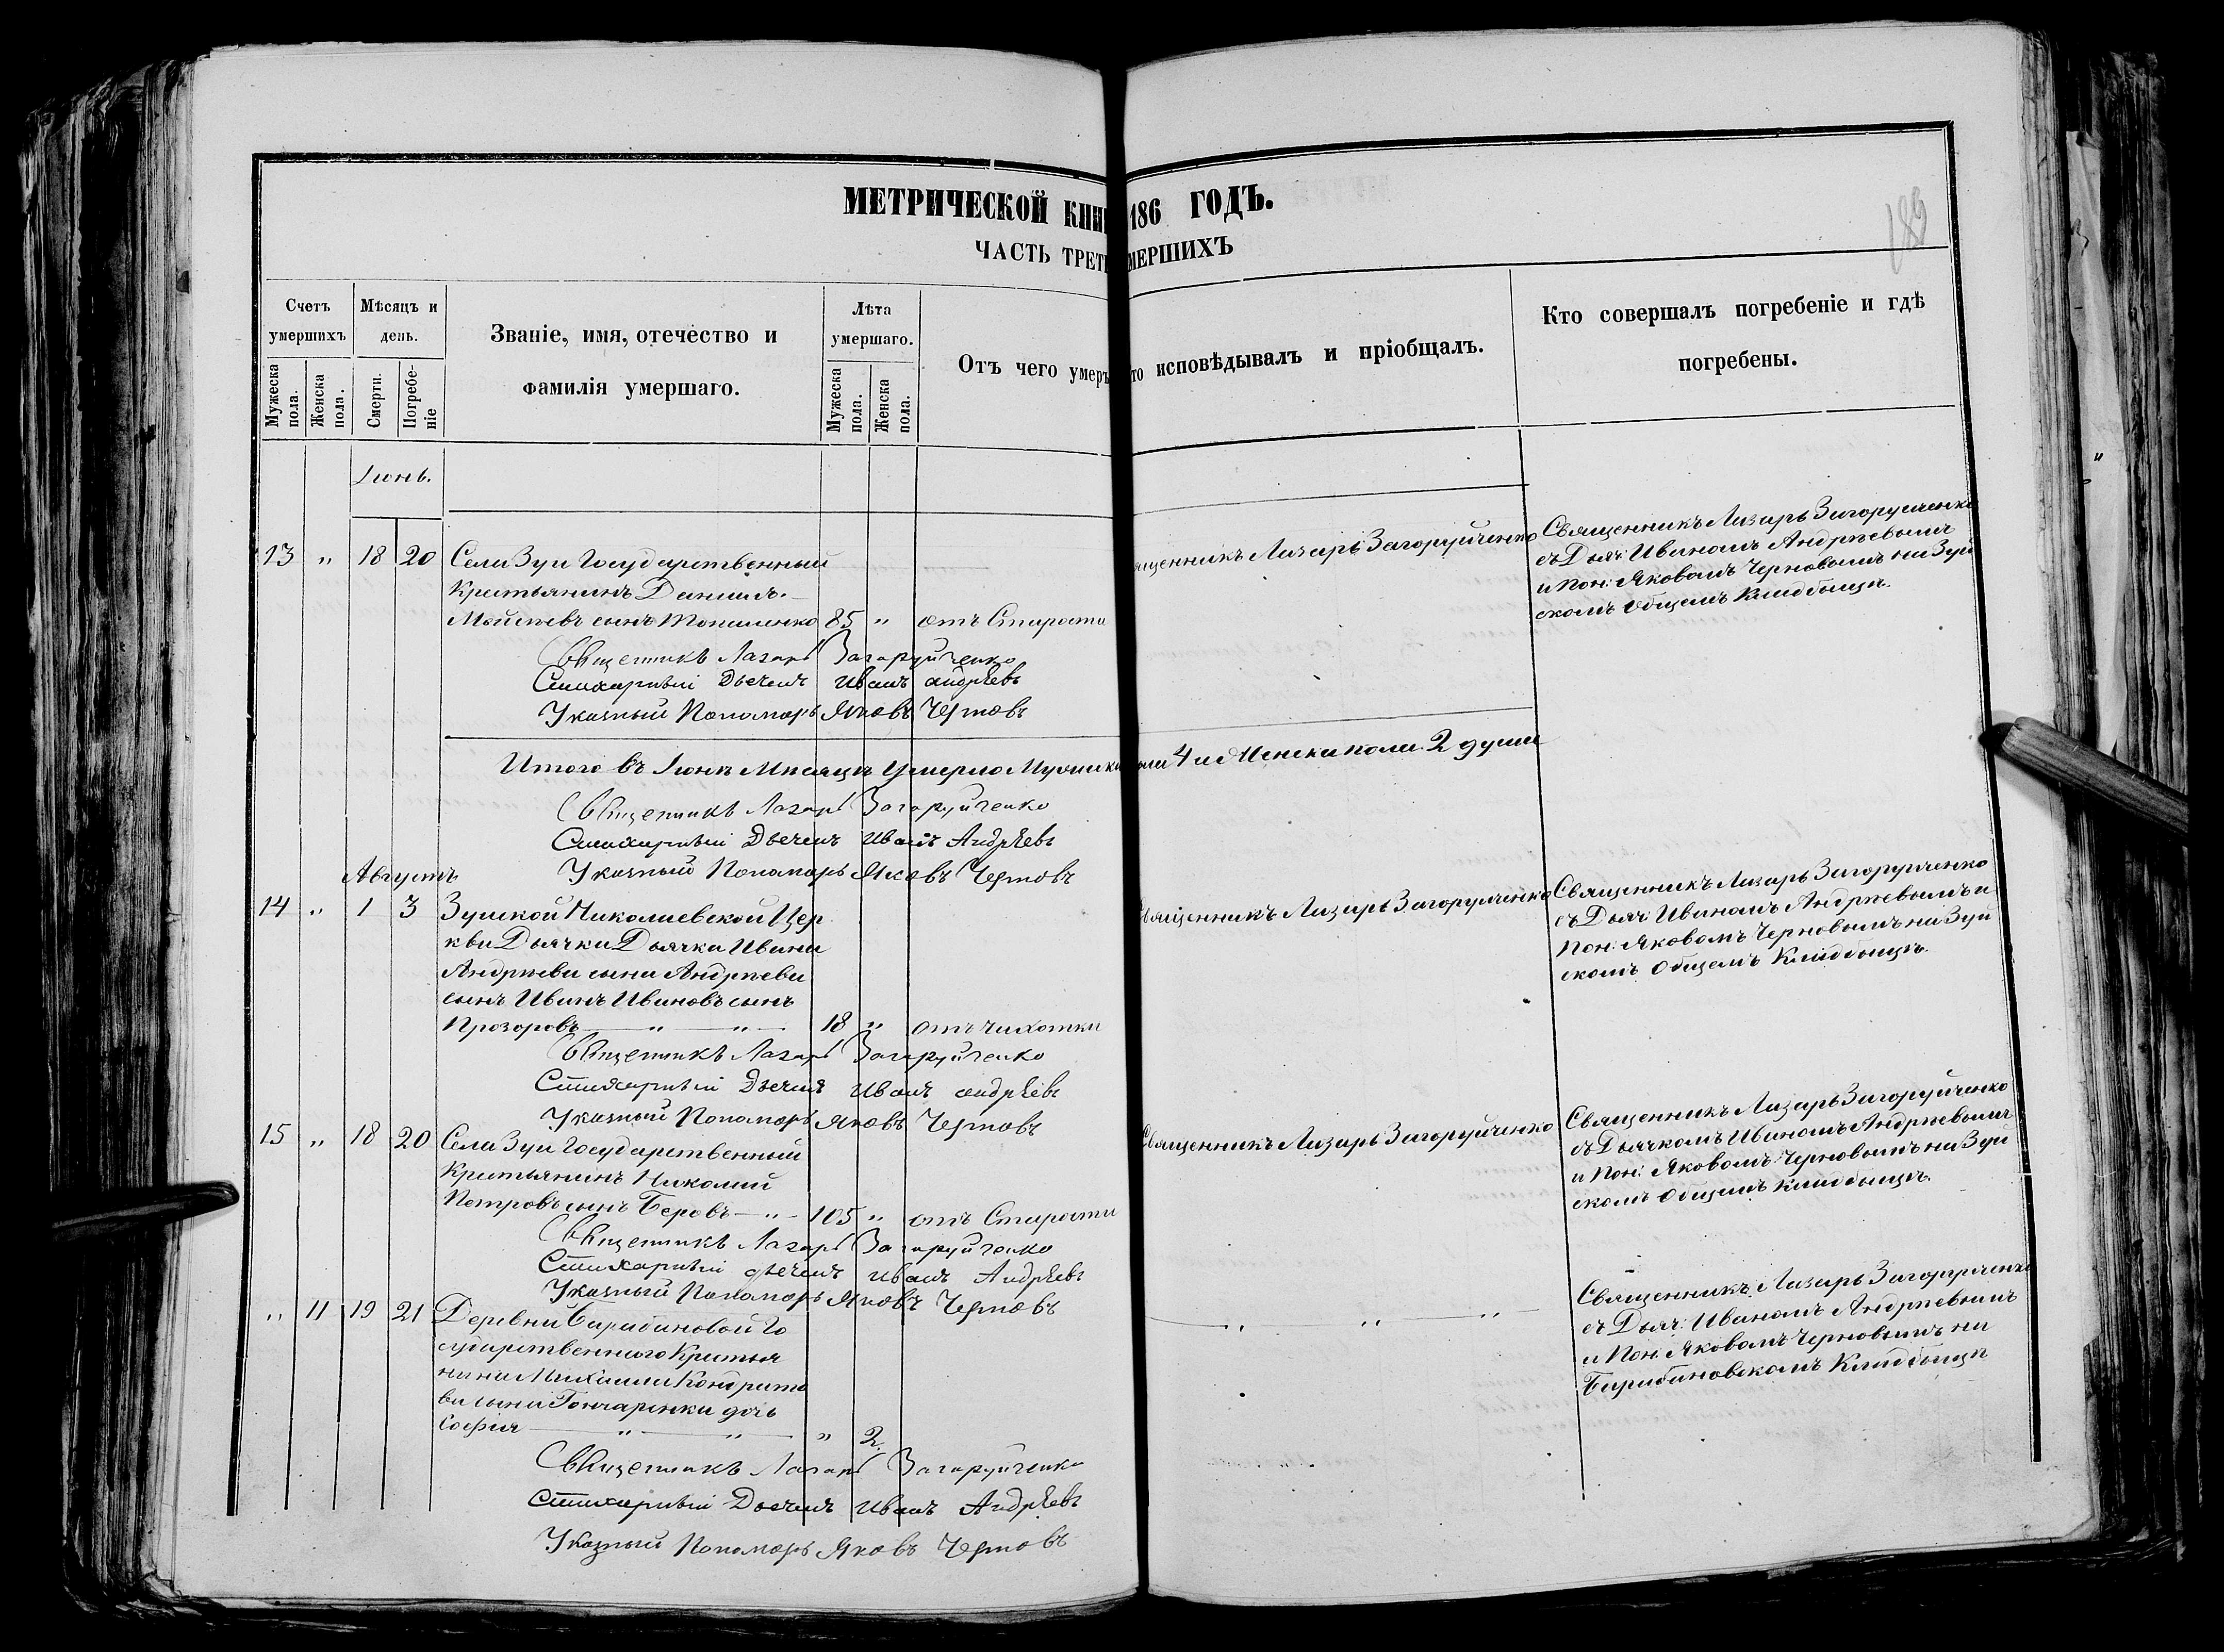 МЕТРИЧЕСКОЙ КНИ 186 ГОДЪ.
ЧАСТЬ ТРЕТ МЕРШИХЪ
189
Счетъ умершихъ
Мужеска пола.
Женска пола.
Мѣсяцъ и день.
Смерти.
Погребеніе
Званіе, имя, отечество и
фамилія умершаго.
Лѣта умершаго.
Мужеска пола.
Женска пола.
Отъ чего умеръ то исповѣдывалъ и пріобщалъ.
Кто совершалъ погребеніе и гдѣ
погребены.
Іюнь.
13 " 18 20 Села Зуи Государственный
Крестьянинъ Данилъ
Мойсеевъ сынъ Топиленко 85 " отъ Старости
ященникъ Лазарь Загоруйченко
Священникъ Лазарь Загоруйченко
съ Дьяч: Иваномъ Андреевымъ
и Пон: Яковомъ Черновымъ на Зуй
скомъ общемъ Кладбищѣ.
Священникъ Лазарь Загоруйченко
Стихарный Дьячекъ Иванъ Андрѣевъ
Указный Пономарь Яковъ Черновъ
Итого въ Іюнѣ Мѣсяцѣ Умерло Мужеска пола 4 и Женска пола 2 души
Священникъ Лазарь Загоруйченко
Стихарный Дьячекъ Иванъ Андрѣевъ
Указный Пономарь Яковъ Черновъ
Августъ
14 " 1 3 Зуйской Николаевской Цер
кви Дьячки Дьячка Ивана
Андреева сына Андреева
сынъ Иванъ Ивановъ сынъ
Прозоровъ " " 18 " отъ чихотки
Священникъ Лазарь Загоруйченко
Священникъ Лазарь Загоруйченко
съ Дьяч: Иваномъ Андреевымъ и
Пон: Яковомъ Черновымъ на Зуй
скомъ общемъ Кладбищѣ.
Священникъ Лазарь Загоруйченко
Стихарный Дьячекъ Иванъ Андрѣевъ
Указный Пономарь Яковъ Черновъ
15 " 18 20 Села Зуи Государственный
Крестьянинъ Николай
Петровъ сынъ Беровъ " 105 " отъ Старости
Священникъ Лазарь Загоруйченко
Священникъ Лазарь Загоруйченко
съ Дьячкомъ Иваномъ Андреевымъ
и Пон: Яковомъ Черновымъ на Зуй
скомъ общемъ Кладбищѣ.
Священникъ Лазарь Загоруйченко
Стихарный дьячекъ Иванъ Андрѣевъ
Указный Пономарь Яковъ Черновъ
" 11 19 21 Деревни Барабановой Го
сударственнаго Крестья
нина Михаила Кондрато
ва сына Гончаренки дочь
Софія " " " 2.
" " "
Священникъ Лазарь Загоруйченко
съ Дьяч: Иваномъ Андреевымъ
и Пон: Яковомъ Черновымъ на
Барабановскомъ Кладбищѣ
Священникъ Лазарь Загоруйченко
Стихарный Дьячекъ Иванъ Андрѣевъ
Указный Пономарь Яковъ Черновъ